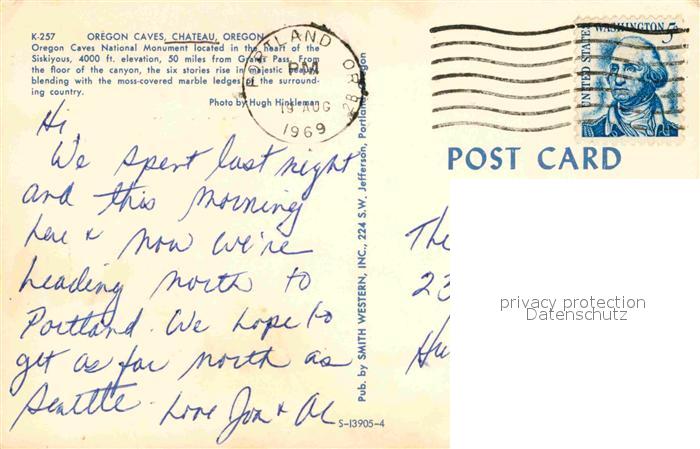 K-257 OREGON CAVES, CHATEAU, OREGON
Oregon Caves National Monument located in the heart of the
Siskiyous, 4000 ft. elevation, 50 miles from Grants Pass. From
the floor of the canyon, the six stories rise in majestic beauty
blending with the moss-covered marble ledges of the surround-
ing country.
Photo by Hugh Hinkleman
Hi,
We spent last night
and this morning
here & now we're
heading north to
Portland. We hope to
get as far north as
Seattle. Love Jon & Al
S-13905-4
Pub. by SMITH WESTERN, INC., 224 S.W. Jefferson, Portland, Oregon
PORTLAND OR
PM
19 AUG
1969
UNITED STATES
WASHINGTON 5c
POST CARD
The
23
Hu
privacy protection
Datenschutz